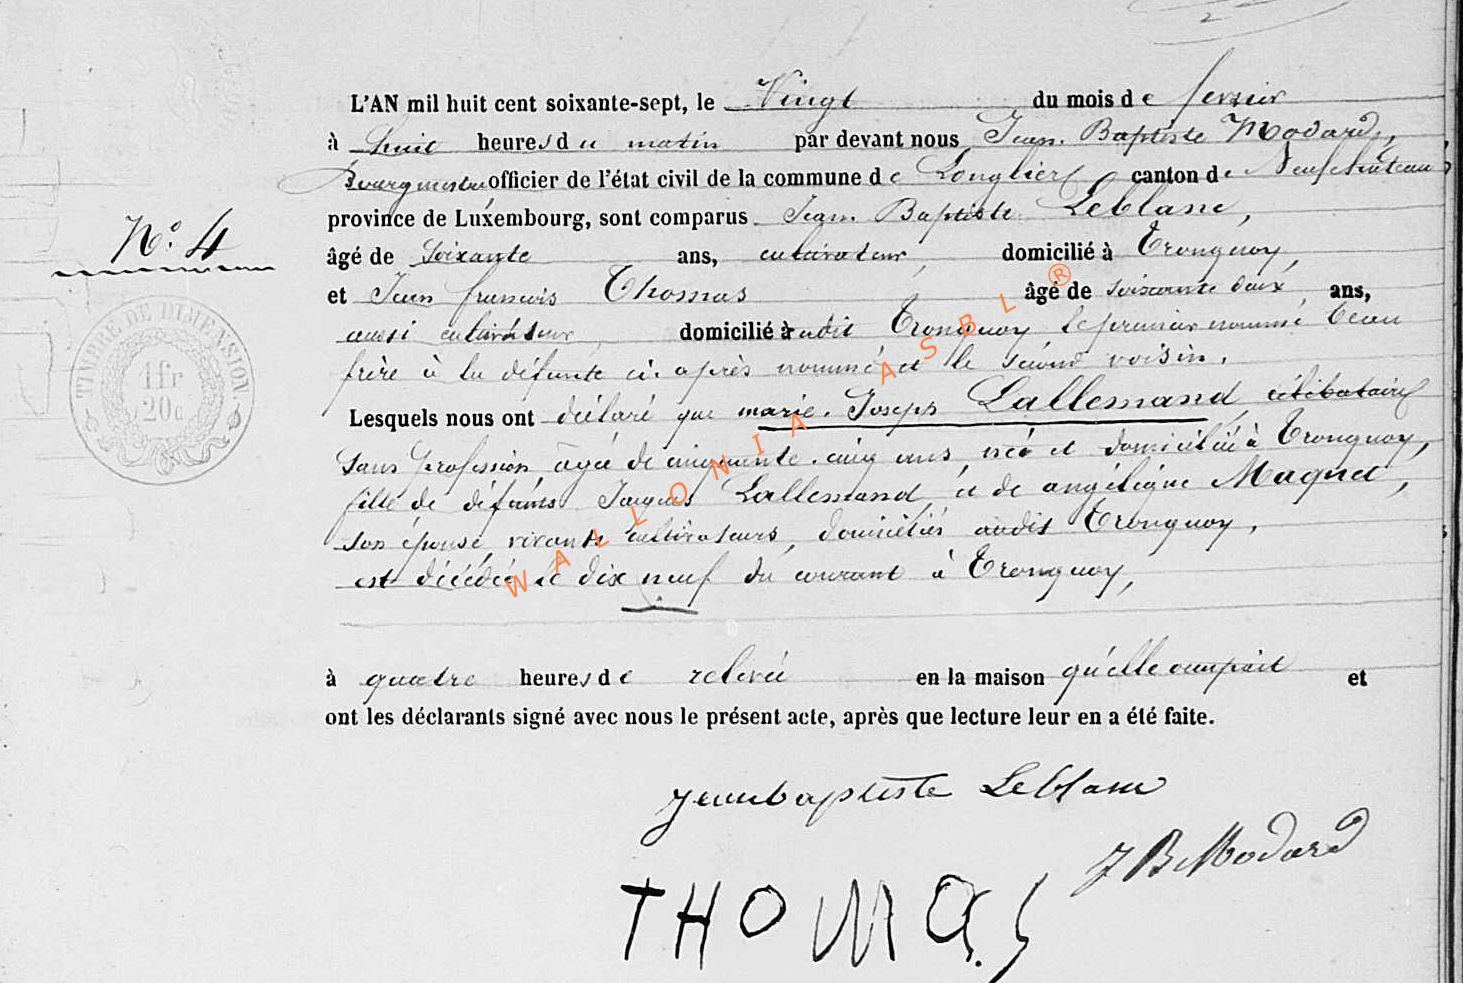 L'AN mil huit cent soixante-sept, le Vingt du mois de fevrier
à huit heures du matin par devant nous Jean Baptiste Modard,
Bourgmestre, officier de l'état civil de la commune de Longlier canton de Neufchâteau
province de Luxembourg, sont comparus Jean Baptiste Leblanc,
N° 4
âgé de soixante ans, cultivateur, domicilié à Tronquoy,
et Jean françois Thomas âgé de soixante deux ans,
aussi cultivateur, domicilié audit Tronquoy, le premier nommé beau
frère à la défunte ci-après nommé et le second voisin.
TIMBRE DE DIMENSION.
1 fr
20c
Lesquels nous ont déclaré que marie Joseph Lallemand, célibataire
sans profession âgée de cinquante-cinq ans, née et domiciliée à Tronquoy,
fille de défunts Jacques Lallemand et de angélique Maquet,
son épouse, vivants cultivateurs, domiciliés audit Tronquoy,
est décédée le dix neuf du courant à Tronquoy,
à quatre heures de relevée en la maison qu'elle occupait et
ont les déclarants signé avec nous le présent acte, après que lecture leur en a été faite.
Jeanbaptiste Leblanc
J B Modard
THOMAS
WALLONIA ASBL ®